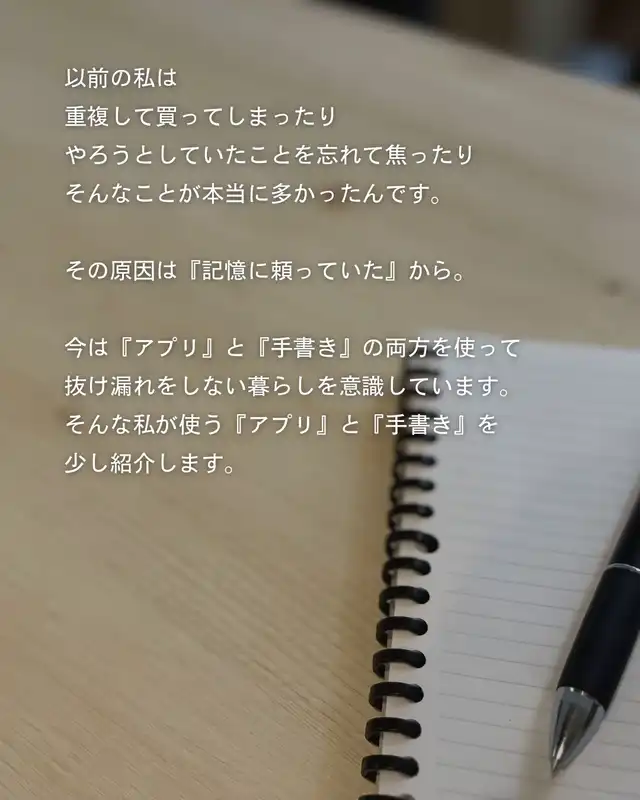 以前の私は
重複して買ってしまったり
やろうとしていたことを忘れて焦ったり
そんなことが本当に多かったんです。
その原因は『記憶に頼っていた』から。
今は『アプリ』と『手書き』の両方を使って
抜け漏れをしない暮らしを意識しています。
そんな私が使う『アプリ』と『手書き』を
少し紹介します。